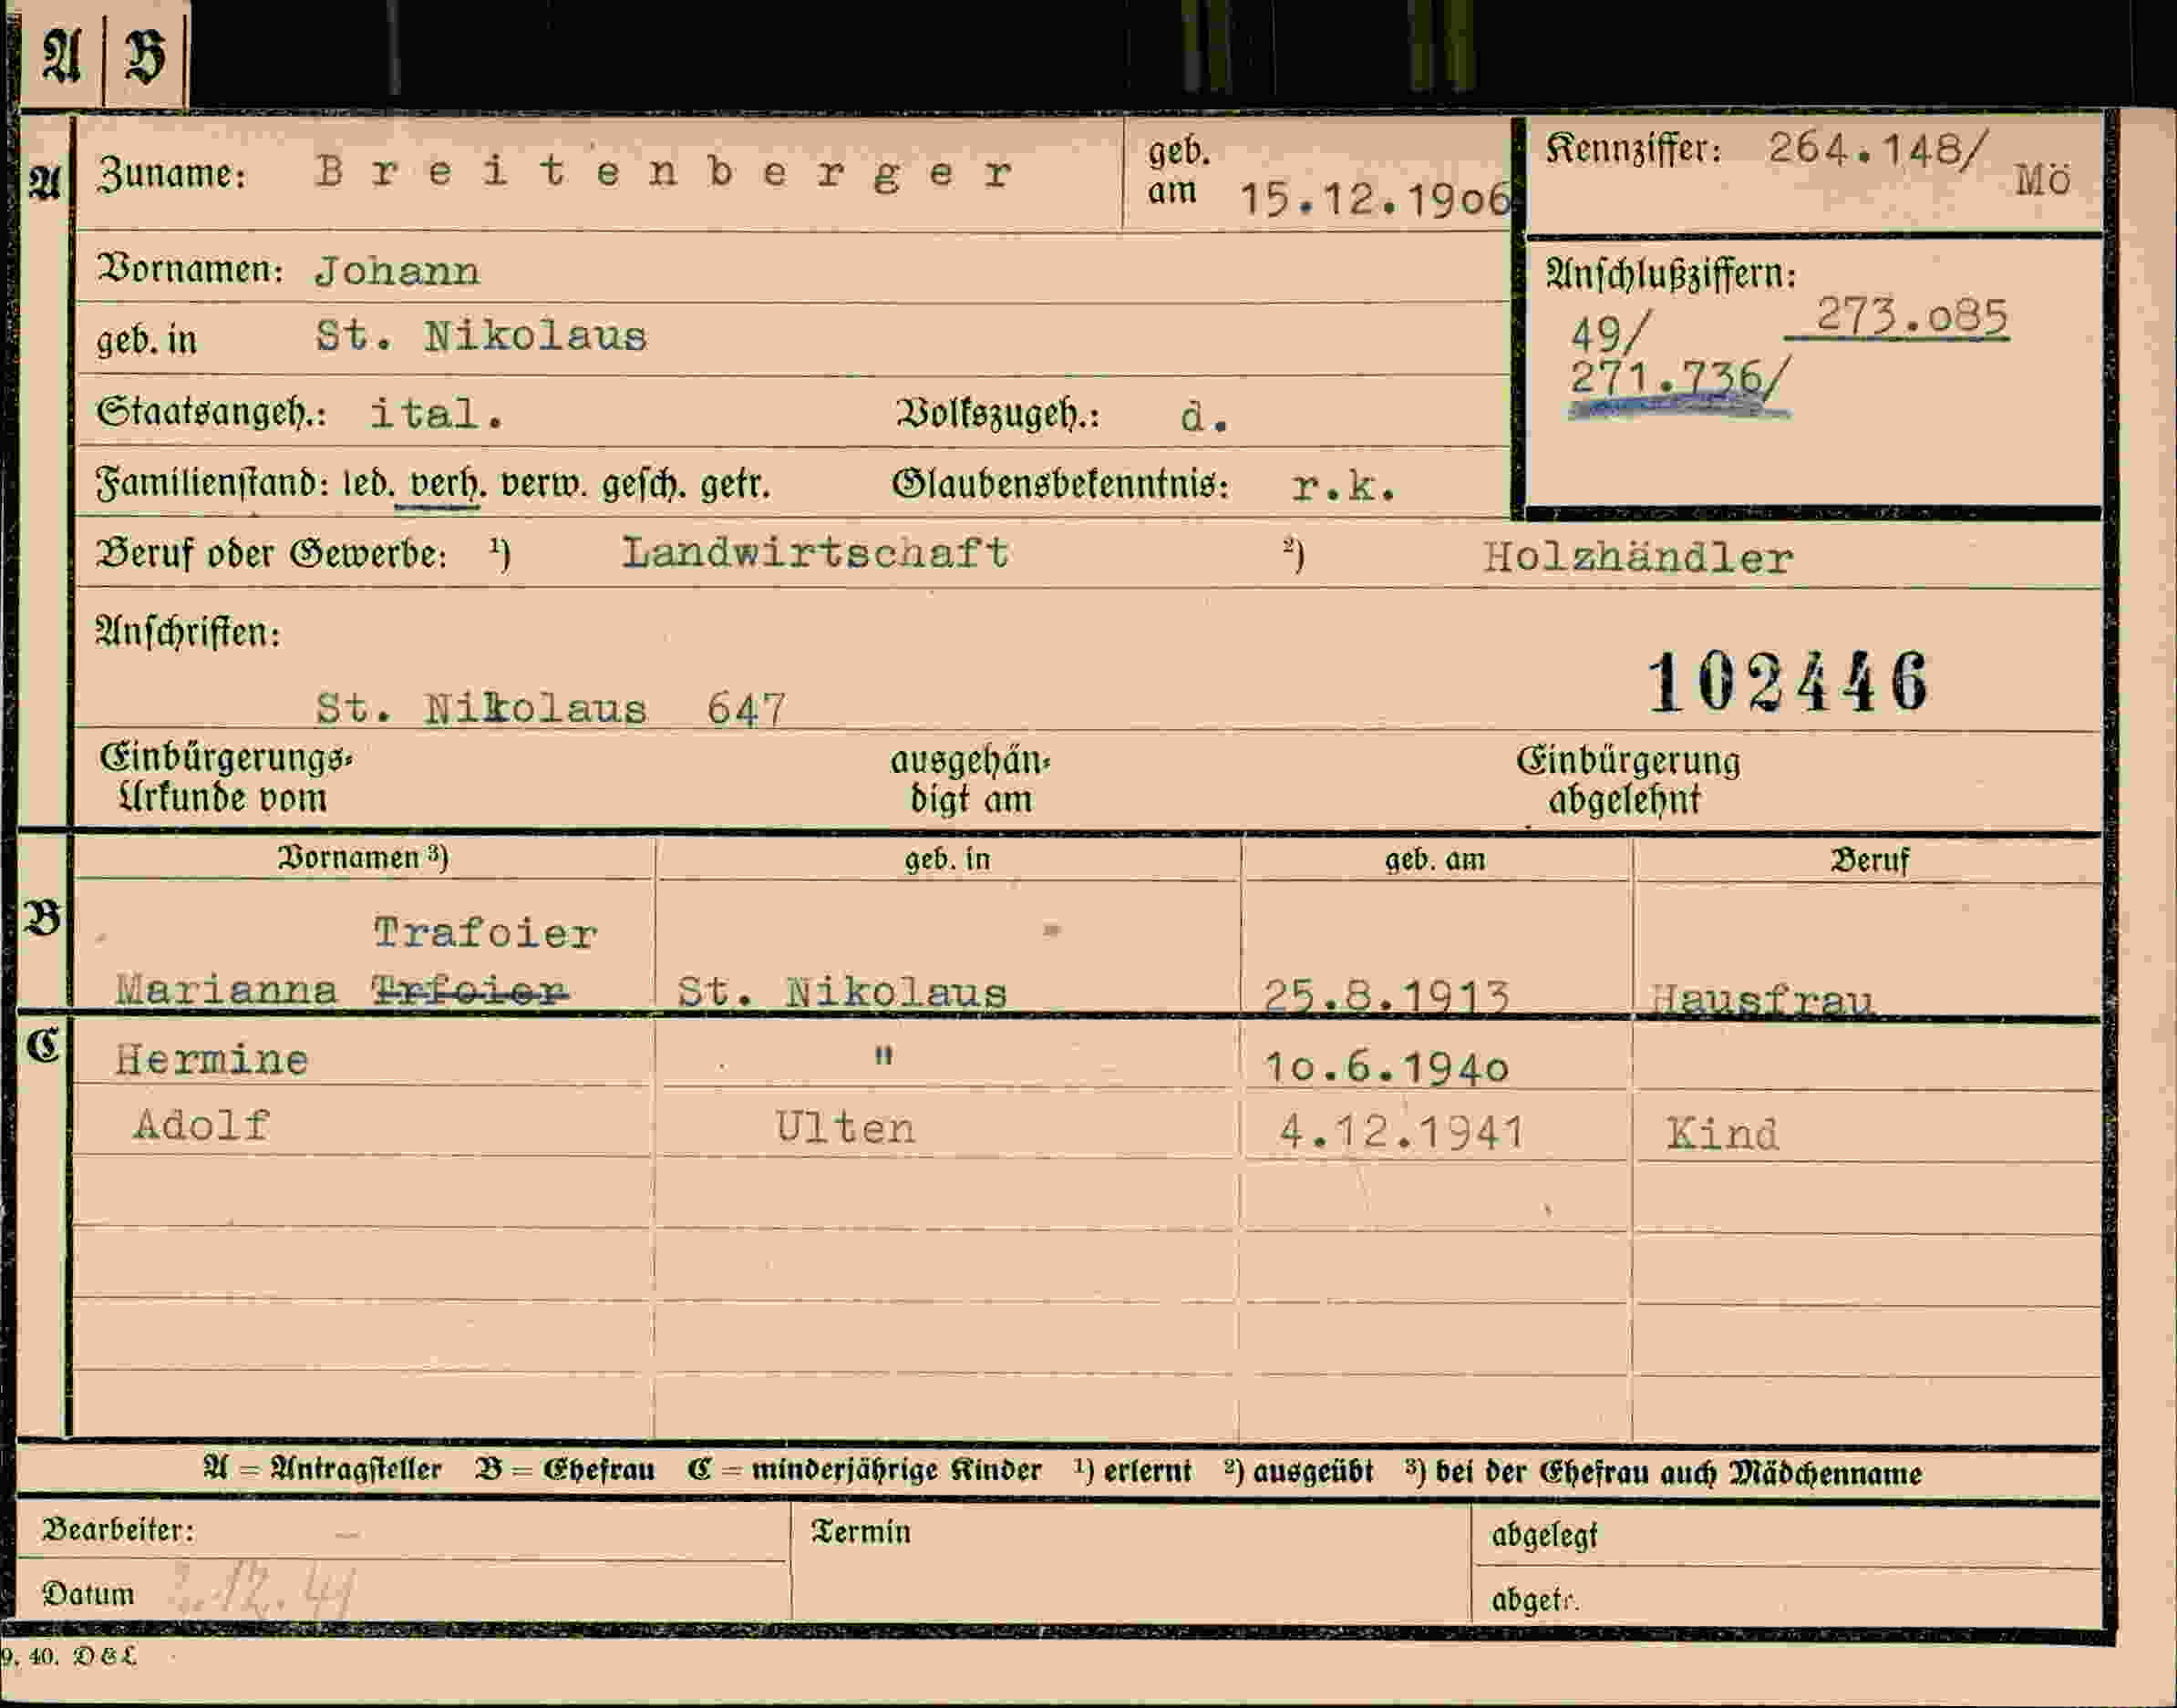 A B
A Zuname: Breitenberger geb. am 15.12.1906
Kennziffer: 264.148/ Mö
Vornamen: Johann
Anschlußziffern:
273.085
49/
271.736/
geb. in St. Nikolaus
Staatsangeh.: ital. Volkszugeh.: d.
Familienstand: led. verh. verw. gesch. getr. Glaubensbekenntnis: r.k.
Beruf oder Gewerbe: ¹) Landwirtschaft ²) Holzhändler
Anschriften:
102446
St. Nikolaus 647
Einbürgerungs- ausgehän- Einbürgerung
Urkunde vom digt am abgelehnt
Vornamen ³) geb. in geb. am Beruf
B
Trafoier
Marianna Trfoier St. Nikolaus 25.8.1913 Hausfrau
C
Hermine " 10.6.1940
Adolf Ulten 4.12.1941 Kind
A = Antragsteller B = Ehefrau C = minderjährige Kinder ¹) erlernt ²) ausgeübt ³) bei der Ehefrau auch Mädchenname
Bearbeiter: – Termin abgelegt
Datum .12.41 abgetr.
9. 40. D & L